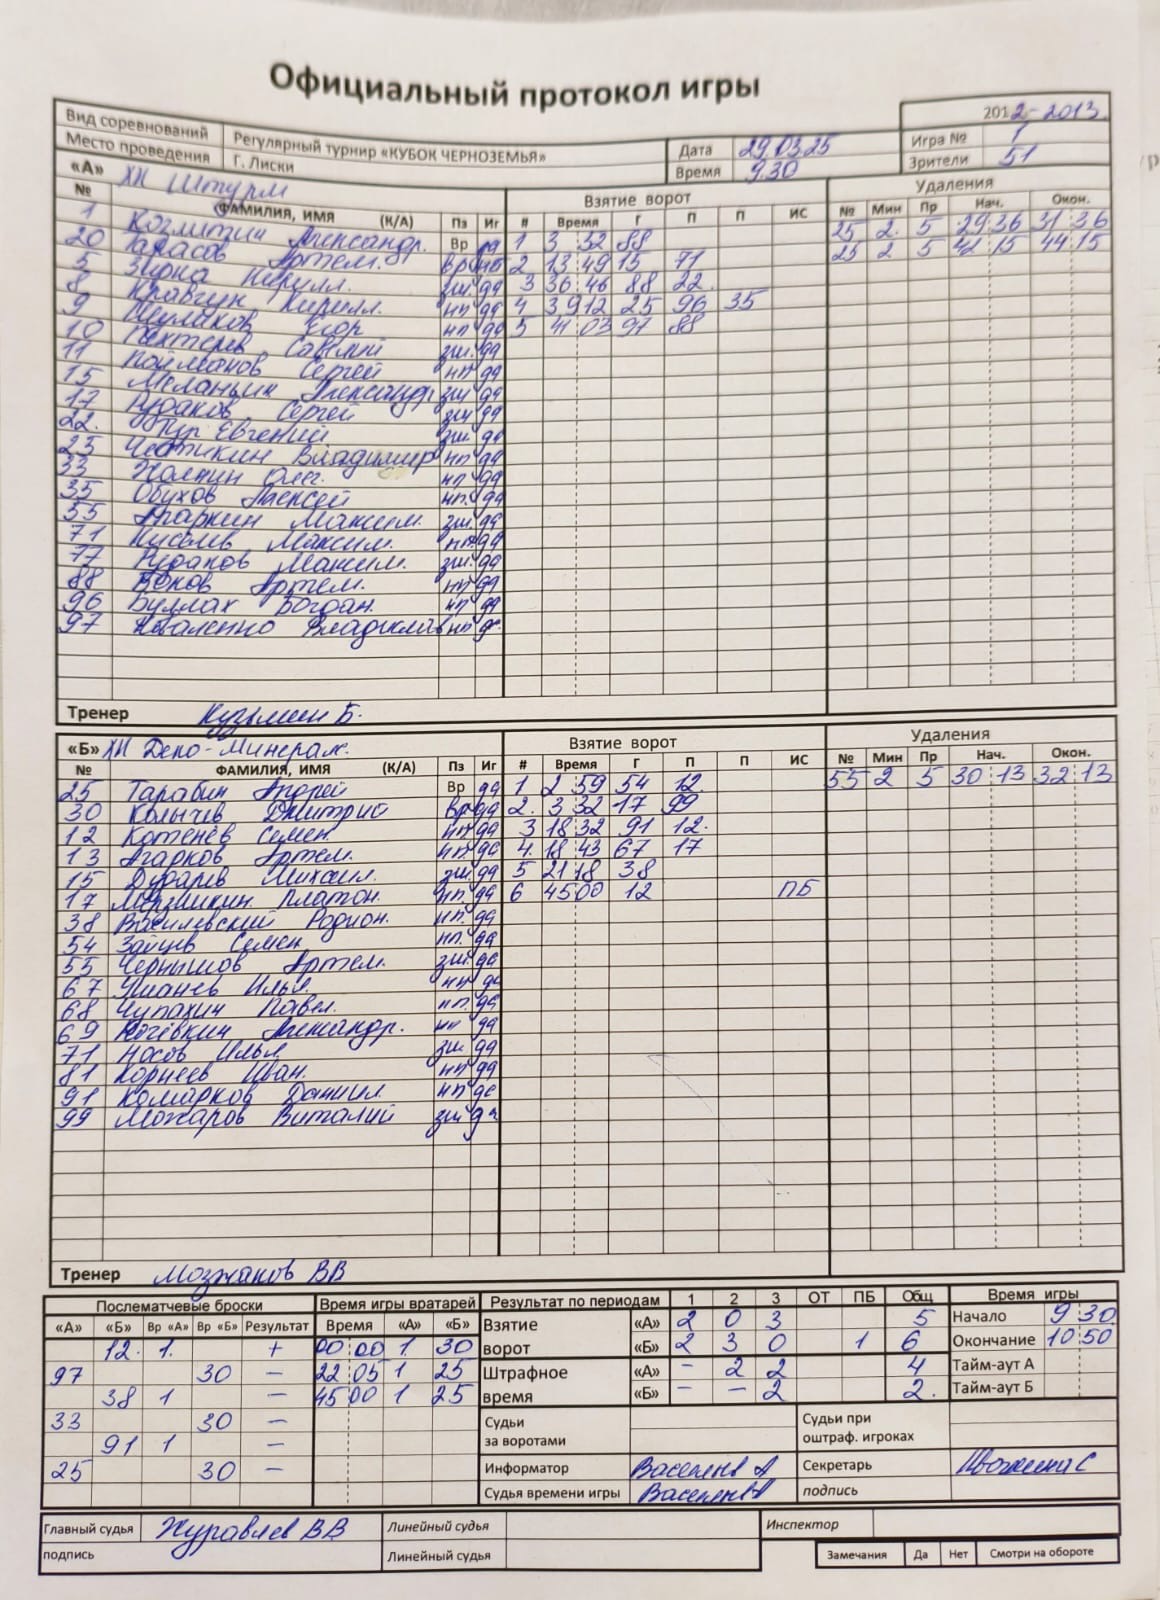 Официальный протокол игры
2012-2013
Вид соревнований Регулярный турнир «КУБОК ЧЕРНОЗЕМЬЯ» Дата 29.03.25 Игра № 1
Место проведения Г. Лиски Время 9.30 Зрители 51
«А» ХК Штурм Взятие ворот Удаления
№ ФАМИЛИЯ, ИМЯ (К/А) Пз Иг # Время Г П П ИС № Мин Пр Нач. Окон.
1 Александр. Вр да 1 3 32 88 25 2. 5 29 36 31 36
20 Тарасов Артем. Вр 2 13 49 15 71 25 2 5 42 15 44 15
5 Кирилл. зщ. да 3 36 46 88 22.
8 Кравчук Кирилл. нп да 4 39 12 25 96 35
9 Егор нп да 5 41 03 97 88
10 Савелий зщ. да
11 Сергей нп да
15 Александр зщ да
17 Рудаков Сергей зщ да
22. Евгений зщ. да
23 Владимир нп да
33 Олег. нп да
35 Обухов Алексей нп. да
55 Агаркин Максим. зщ. да
71 Киселев Максим. нп. да
77 Рудаков Максим. зщ. да
88 Артем. нп да
96 Богдан. нп да
97 Коваленко Владислав нп да
Тренер Кузьмин Б.
«Б» ХК Депо-Минерал. Взятие ворот Удаления
№ ФАМИЛИЯ, ИМЯ (К/А) Пз Иг # Время Г П П ИС № Мин Пр Нач. Окон.
25 Тарабин Андрей Вр да 1 2 59 54 12. 55 2 5 30 13 32 13
30 Колычев Дмитрий Вр да 2. 3 32 17 99
12 Котенёв Семен. нп да 3 18 32 91 12.
13 Агарков Артем. нп. да 4. 18 43 67 17
15 Дударев Михаил. зщ да 5 21 18 38
17 Платон. нп. да 6 45 00 12 ПБ
38 Василевский Родион. нп. да
54 Зайцев Семен нп. да
55 Чернышов Артем. зщ. да
67 Ушанев Илья. нп да
68 Чупахин Павел. нп. да
69 Александр. нп да
71 Носов Илья. зщ. да
81 Корнеев Иван. нп да
91 Комарков Даниил. нп да
99 Можаров Виталий зщ да
Тренер Мозжаков ВВ
Послематчевые броски Время игры вратарей Результат по периодам 1 2 3 ОТ ПБ Общ Время игры
«А» «Б» Вр «А» Вр «Б» Результат Время «А» «Б» Взятие «А» 2 0 3 5 Начало 9 30
12. 1. + 00 00 1 30 ворот «Б» 2 3 0 1 6 Окончание 10 50
97 30 — 22 05 1 25 Штрафное «А» - 2 2 4 Тайм-аут А
38 1 — 45 00 1 25 время «Б» - - 2 2. Тайм-аут Б
33 30 — Судьи Судьи при
91 1 — за воротами оштраф. игроках
25 30 — Информатор А Секретарь С
Судья времени игры подпись
Главный судья Журавлев ВВ Линейный судья Инспектор
подпись Линейный судья Замечания Да Нет Смотри на обороте